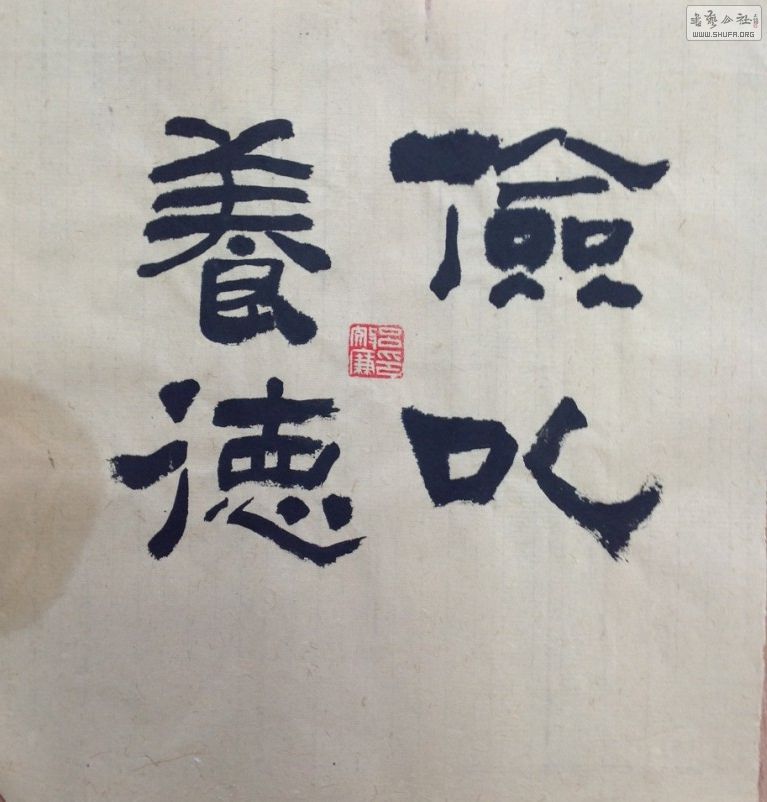 儉以
養德
書藝公社
WWW.SHUFA.ORG